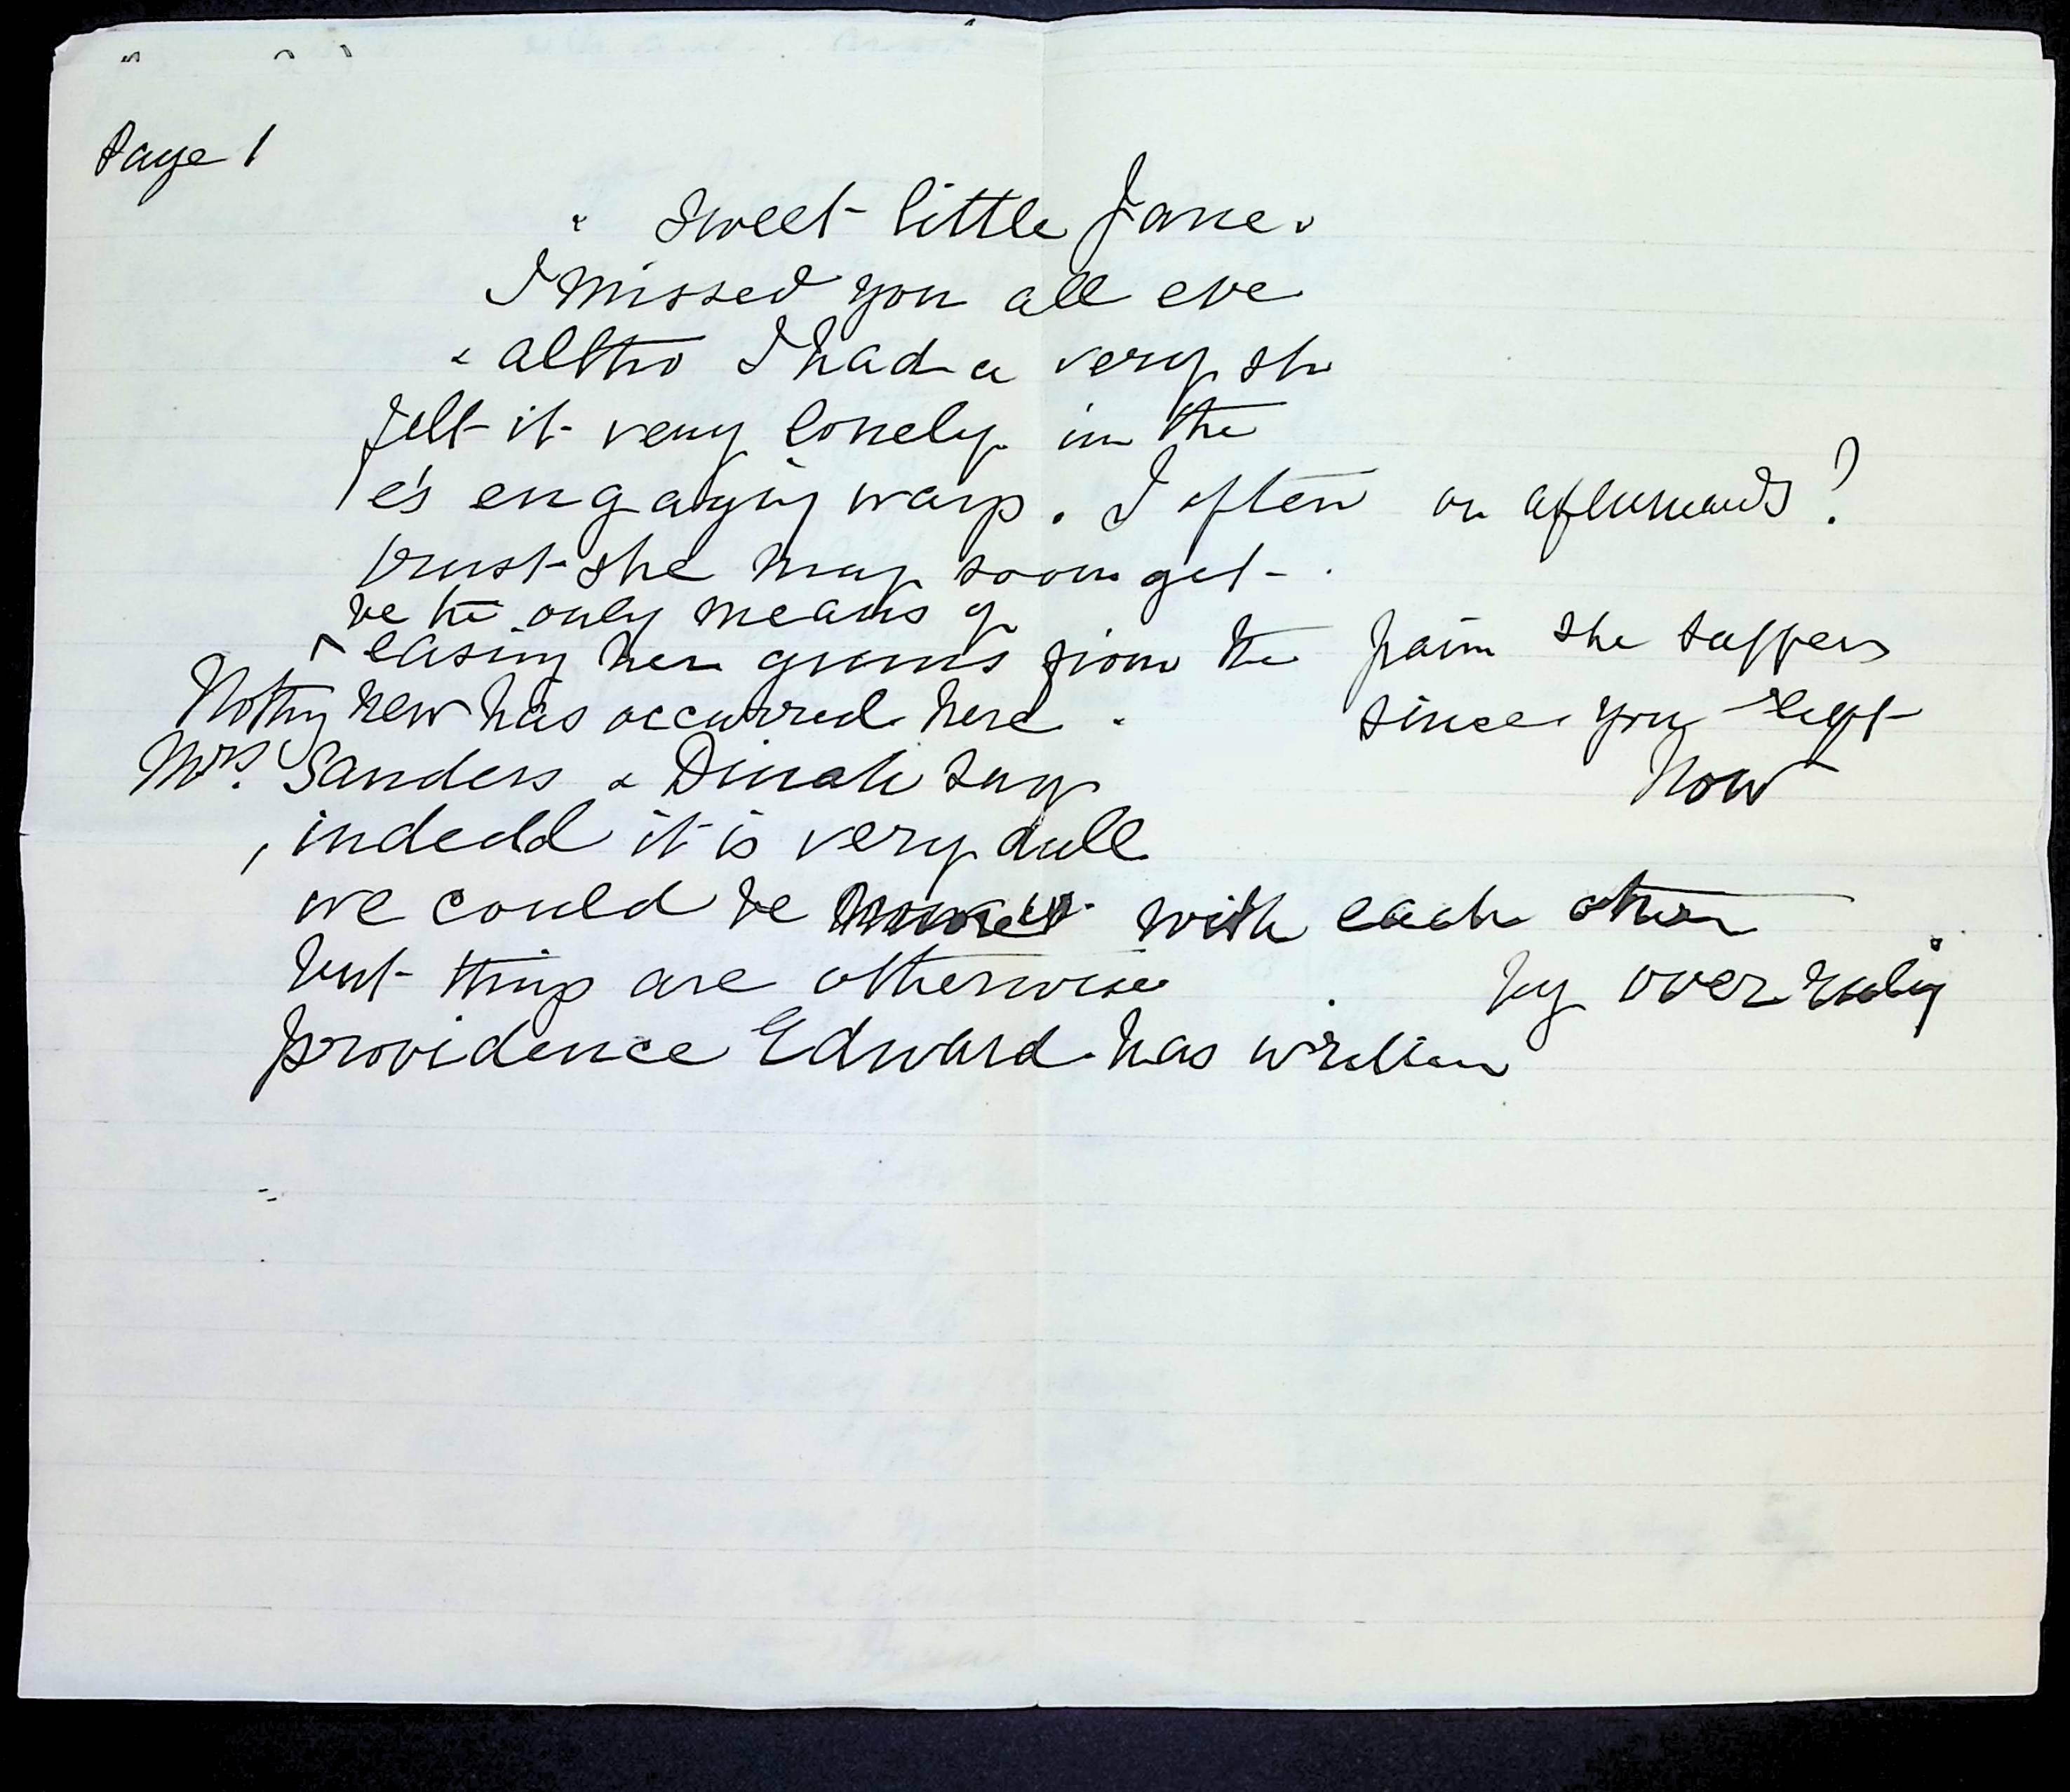 Page 1
Sweet little Jane.
I missed you all eve
altho I had a very sh
felt it very lonely in the
e's engaging ways. I often or afterwards?
trust she may soon get
be the only means of
^ easing her gums from the pain she suffers
Nothg new has occurred here. since you left
Mrs. Sanders & Dinah say Now
, indedd it is very dull
we could be with each other
but things are otherwise by over ruling
providence Edward has written